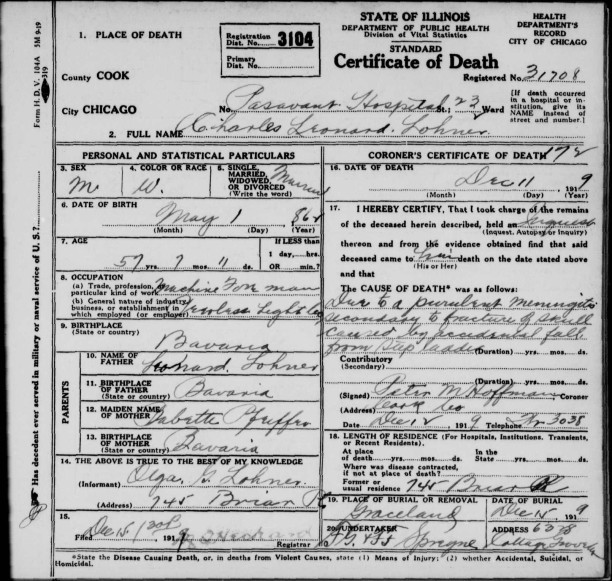 STATE OF ILLINOIS
DEPARTMENT OF PUBLIC HEALTH
Division of Vital Statistics
STANDARD
Certificate of Death
HEALTH
DEPARTMENT'S
RECORD
CITY OF CHICAGO
Registered No. 31708
1. PLACE OF DEATH
Registration
Dist. No. 3104
Primary
Dist. No.
County COOK
City CHICAGO No. Passavant Hospital St.; 23 Ward
[If death occurred in a hospital or institution, give its NAME instead of street and number.]
2. FULL NAME Charles Leonard Lohner
PERSONAL AND STATISTICAL PARTICULARS
3. SEX M
4. COLOR OR RACE W.
5. SINGLE, MARRIED, WIDOWED, OR DIVORCED (Write the word) Married
6. DATE OF BIRTH May 1 1862
(Month) (Day) (Year)
7. AGE 57 yrs. 7 mos. 11 ds. If LESS than 1 day, hrs. OR min.?
8. OCCUPATION
(a) Trade, profession, particular kind of work Machine Foreman
(b) General nature of industry, business, or establishment in which employed (or employer)
9. BIRTHPLACE
(State or country) Bavaria
PARENTS
10. NAME OF FATHER Leonard Lohner
11. BIRTHPLACE OF FATHER
(State or country) Bavaria
12. MAIDEN NAME OF MOTHER Babette
13. BIRTHPLACE OF MOTHER
(State or country) Bavaria
14. THE ABOVE IS TRUE TO THE BEST OF MY KNOWLEDGE
(Informant) Olga B. Lohner
(Address) 745 Briar Pl
15. Filed Dec 15 191 9
Registrar
CORONER'S CERTIFICATE OF DEATH 172
16. DATE OF DEATH
Dec 11 191 9
(Month) (Day) (Year)
17. I HEREBY CERTIFY, That I took charge of the remains
of the deceased herein described, held an Inquest
(Inquest, Autopsy or Inquiry)
thereon and from the evidence obtained find that said
deceased came to his death on the date stated above
(His or Her)
and that
The CAUSE OF DEATH* was as follows:
Due to a purulent Meningitis
secondary to fracture of skull
caused by accidental fall
from step ladder
(Duration) yrs. mos. ds.
Contributory
(Secondary)
(Duration) yrs. mos. ds.
(Signed) Peter M Hoffman Coroner
(Address) Cook Co
Date Dec 12 191 9 Telephone
18. LENGTH OF RESIDENCE (For Hospitals, Institutions, Transients, or Recent Residents).
At place of death yrs. mos. ds. In the State yrs. mos. ds.
Where was disease contracted, if not at place of death?
Former or usual residence 745 Briar Pl
19. PLACE OF BURIAL OR REMOVAL Graceland
DATE OF BURIAL Dec 15 191 9
20. UNDERTAKER
ADDRESS Cottage Grove
*State the Disease Causing Death, or, in deaths from Violent Causes, state (1) Means of Injury; (2) whether Accidental, Suicidal, or
Homicidal.
Has decedent ever served in military or naval service of U. S.?
Form H. D. V. 104A 5M 9-19